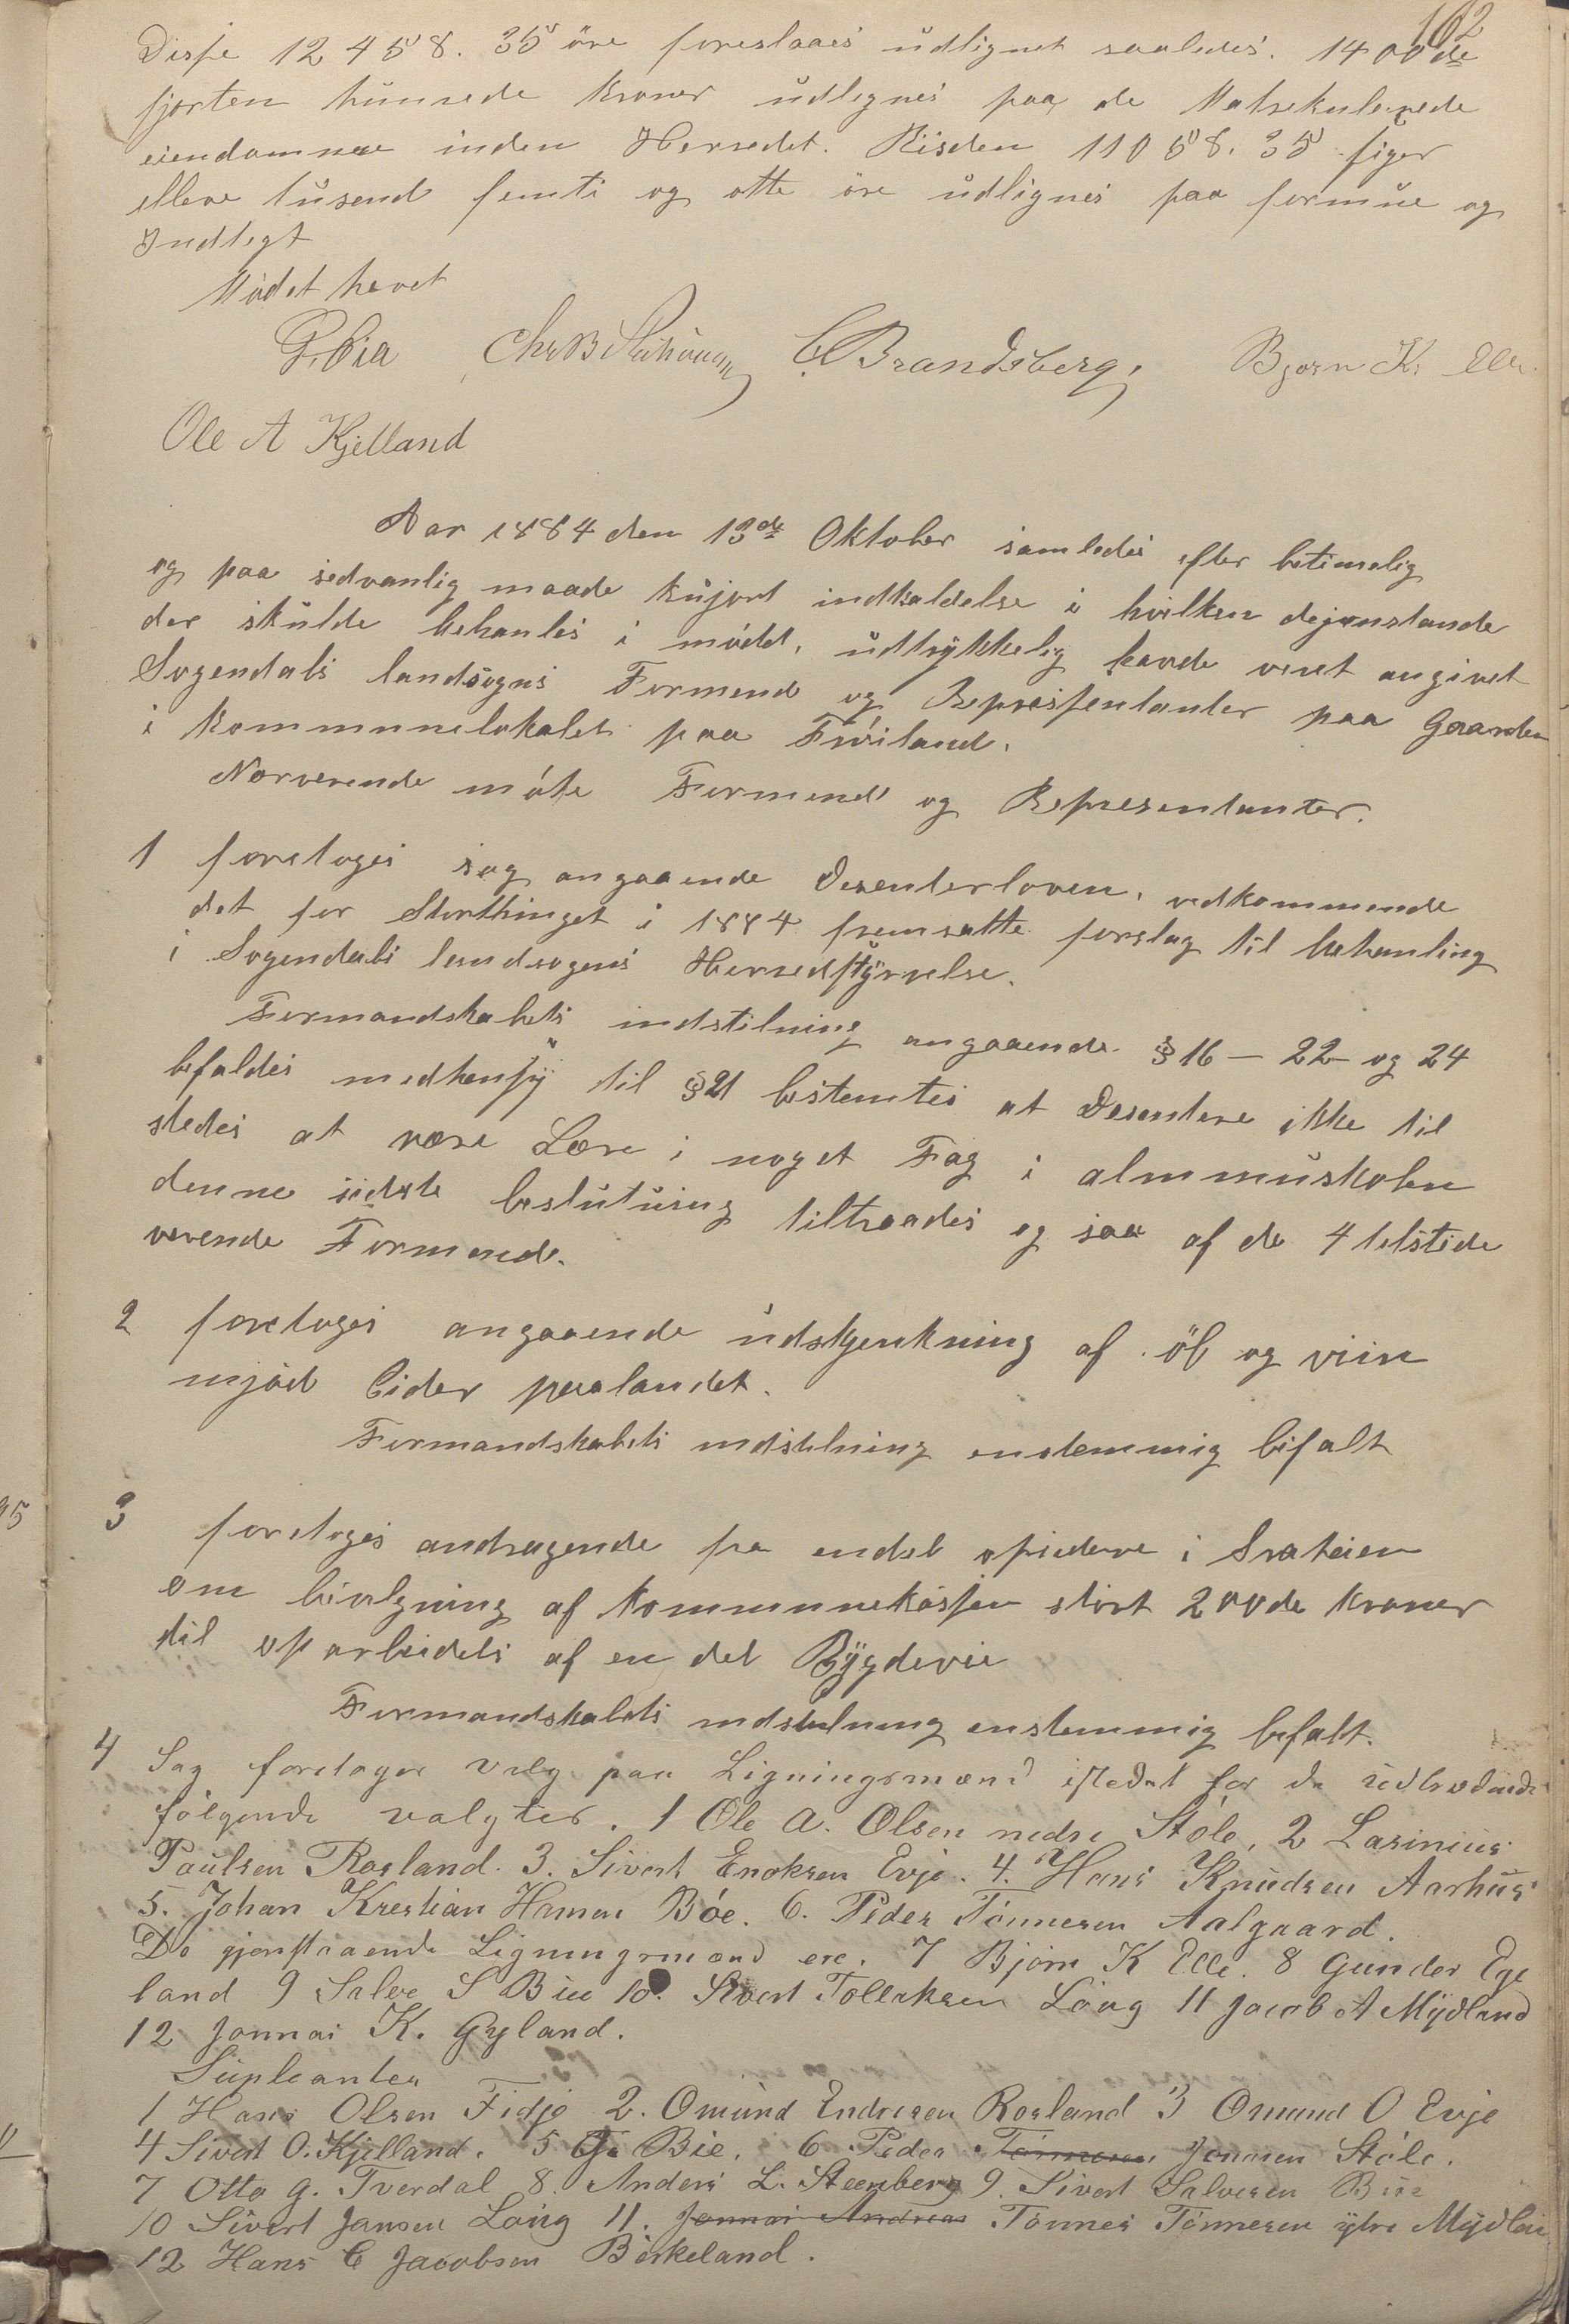 162
Disse 12458. 35 öre foreslaaes udlignet saaledes. 1400 de
fjorten hunrede kroner udlignes paa de Matrekulerede
eiendomme inden Herredet. Risden 11058. 35 siger
elleve tusend femti og otte öre udlignes paa formue og
Indtegt
Mödet hevet
G. Eia Chr B C. Brandsberg, Bjorn K. Elle.
Ole A Kjelland
Aar 1884 den 13de Oktober samledes efter betimelig
og paa sedvanlig maade kujort indkaldelse i hvilken dejenstande
der skulde behanles i mödet, udtrykkelig havde veret angivet
Sogendals landsogns Formend og Represfentanter paa Gaarden
i kommunelokalet paa Fröiland.
Nerverende möte Formend og Representanter.
1 foretoges sag angaaende Desenterloven, vedkommende
det for Storthinget i 1884 fremsatte forslag til behanling
i Sogendals landsogens Herredstyrelse.
Formandskabets indstilning angaaende § 16 – 22 og 24
befaldes medhensy til § 21 bestemtes at Desentere ikke til
stedes at være Lære i noget Fag i almmuskolen
denne sidste beslutning tiltraades og saa af de 4 telstede
verende Formend.
2 foretoges angaaende udskjenkning af öl og viin
mjöd Cider paalandet.
Formandskabets indstelning enstemmig bifalt
3 foretoges andragende fra endel opsidere i Srateien
om bivilgning af Kommunekassen stort 200de kroner
til oparbeidels af en del Bygdeveie
Formandskabets indstelning enstemmig befalt.
4 Sag foretoges valg paa Ligningsmænd istedet for de udtrædende
fölgende valgtes. 1 Ole A. Olsen nedre Stöle, 2 Lasinius
Paulsen Rosland. 3. Sivert Enoksen Evje. 4. Hans Knudsen Aarhus
5. Johan Krestian Hansen Böe. 6. Peder Tönnesen Aalgaard.
De gjenstaaende Ligningsmænd ere. 7 Björn K Elle. 8 Gunder Ege
land 9 Salve S Bie 10. Sivert Tollaksen Löug 11 Jacob A Mydland
12 Jonnas K. Gyland.
Supleanter
1 Hans Olsen Fidje 2. Omund Endresen Rosland 3 Omund O Evje
4 Sivert O. Kjelland. 5 Bie. 6 Peder Tönnesen Jonnsen Stöle.
7 Otto G. Tverdal 8. Anders L. Steenberg 9. Sivert Salvesen Bie
10 Sivert Jansen Löug 11. Jonnas Andreas Tönnes Tönnesen ytre Mydlan
12 Hans C Jacobsen Berkeland.